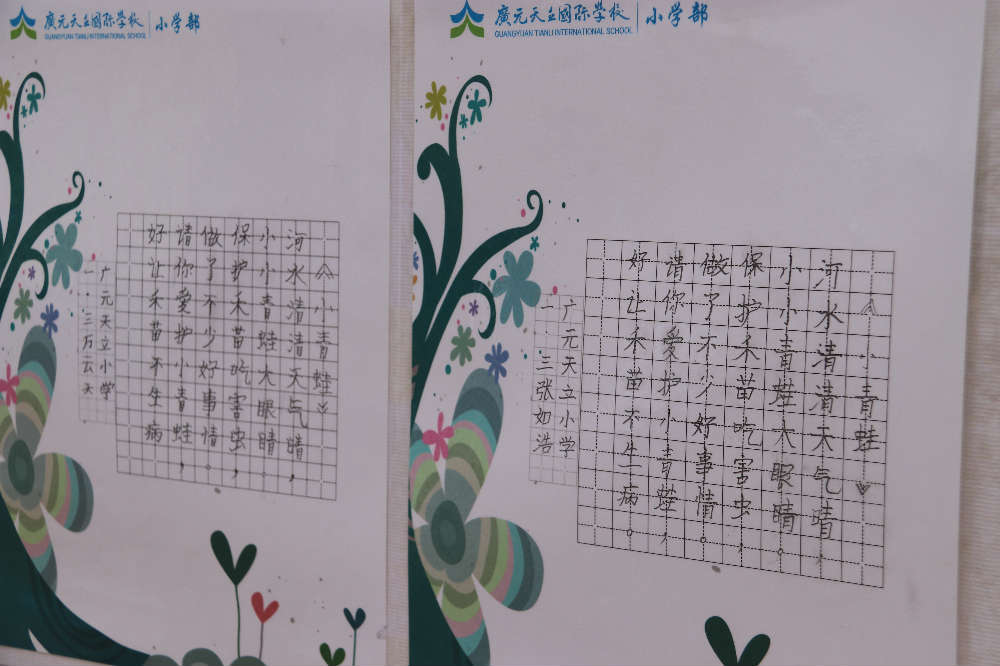 廣元天立國际學校 小学部
GUANGYUAN TIANLI INTERNATIONAL SCHOOL
《小青蛙》
河水清清天气晴，
小小青蛙大眼睛。
保护禾苗吃害虫，
做了不少好事情。
请你爱护小青蛙，
好让禾苗不生病
广元天立小学
一·三万云天
廣元天立國际學校 小学部
GUANGYUAN TIANLI INTERNATIONAL SCHOOL
《青蛙》
河水清清天气晴，
小小青蛙大眼睛。
保护禾苗吃害虫，
做了不少好事情。
请你爱护小青蛙，
好让禾苗不生病。
广元天立小学
一 三张如浩